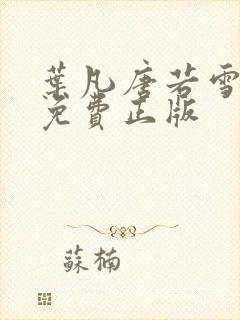 葉凡唐若雪
免費正版
蘇楠